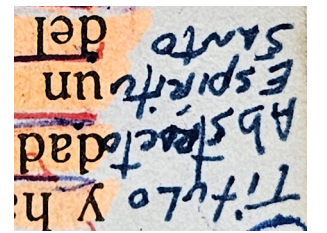 Título
Abstracto
Espíritu
Santo
y ha
dad
un
del